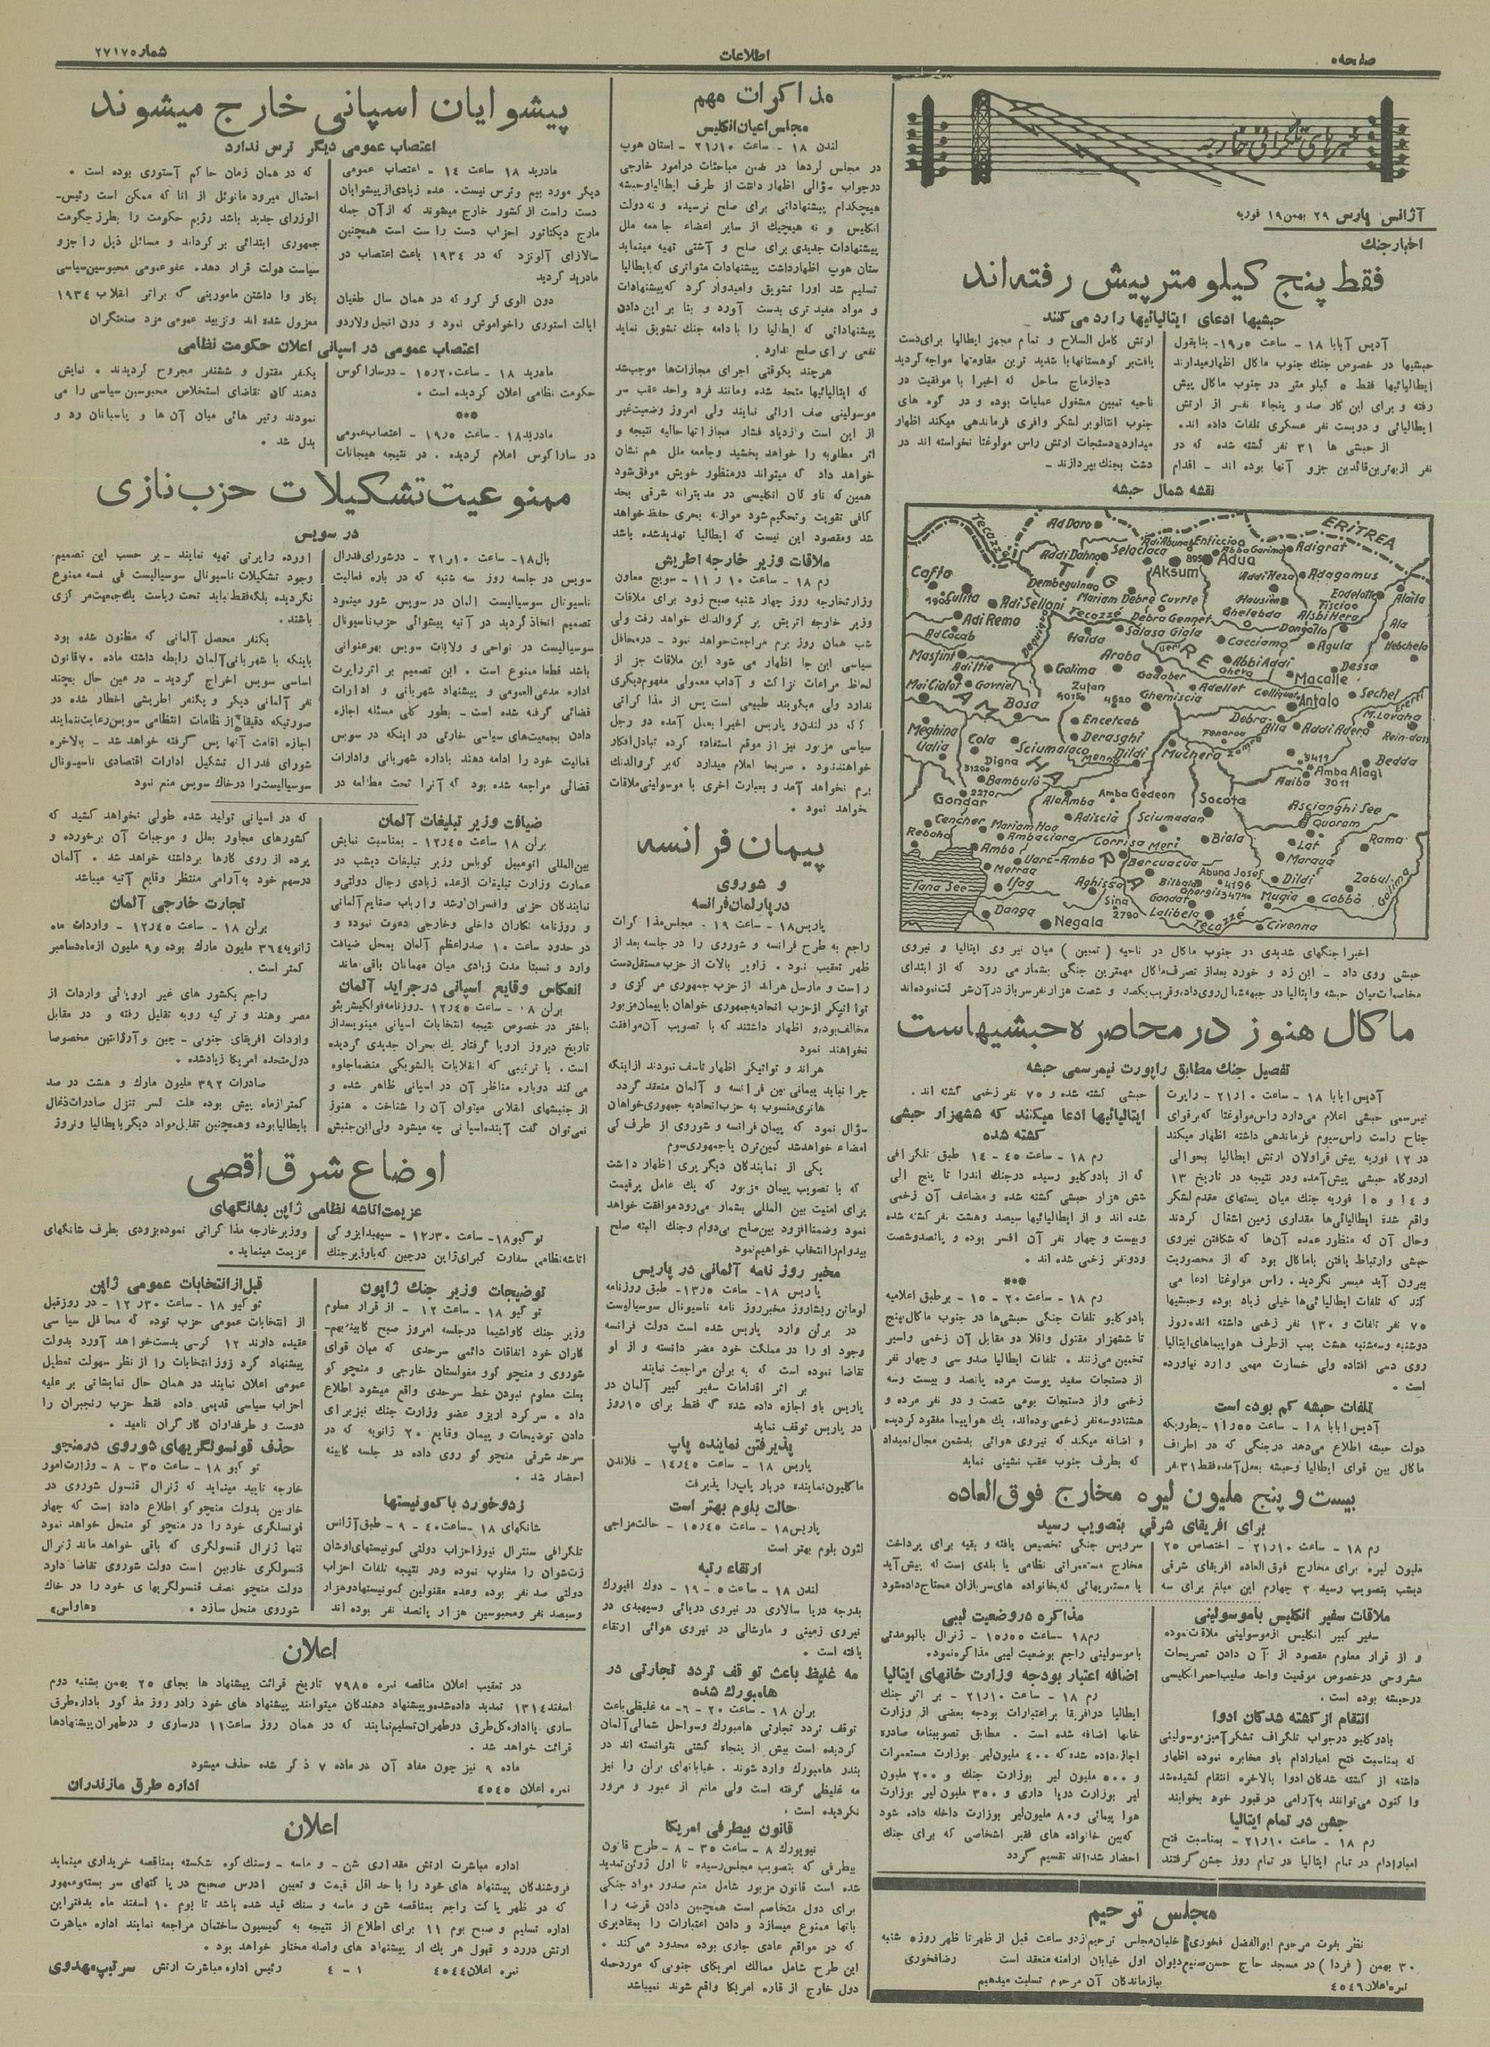 صفحه ۵
اطلاعات
خبرهای تلگرافی خارجه
آژانس پارس ۲۹ بهمن ۱۹ فوریه
اخبار جنک
فقط پنج کیلومتر پیش رفته‌اند
حبشیها ادعای ایتالیائیها را رد می‌کنند
آدیس آبابا ۱۸ - ساعت ۱۹٫۵ - بنابقول
حبشیها در خصوص جنک جنوب ماکال اظهار میدارند
ایطالیائیها فقط ۵ کیلو متر در جنوب ماکال پیش
رفته و برای این کار صد و پنجاه نفر از ارتش
ایطالیائی و دویست نفر عسکری تلفات داده اند.
از حبشی ها ۳۱ نفر کشته شده که دو
نفر از بهترین قائدین جزو آنها بوده اند - اقدام
ارتش کامل السلاح و تمام مجهز ایطالیا برای دست
یافتن بر کوهستانها با شدید ترین مقاومتها مواجه گردید
ناحیه تمبین مشغول عملیات بوده و در گوه های
جنوب انتالو بر لشکر وافری فرماندهی میکند اظهار
میدارد دستجات ارتش راس مولوغتا نخواسته اند در
دشت بجنک بپردازند -
نقشه شمال حبشه
ERITREA
Tecazze
Ad Daro
Adi Abuna
Enticcio
Abba Garima
Adigrat
Addi Dahno
Selaclaca
Adua
Aksum
TIGRE
Cafta
Dembeguina
Addi Heza
Adagamus
Adi Sellani
Mariam Debre
Hausien
Endelotte
Alaila
Adi Remo
Debra Gennet
Dongollo
Ad Cacab
Haida
Salasa Giola
Cacciamo
Agula
Masfint
Araba
Abbi Addi
Dessa
Galima
Macalle
Mai Ciolot
Gavriel
Bosa
Ghemiscia
Antalo
Sechel
Meghina
Encetcab
Debra Aila
Addi Adera
Cola
Derasghi
Sciumalaco
Dildi
Muchera
Bedda
Digna
Amba Alagi
Bambulò
Gondar
AMHARA
Ala Amba
Amba Gedeon
Socota
Ascianghi See
Cencher
Adiscia
Sciumadan
Quoram
Reboha
Ambaciara
Biala
Lat
Rama
Ambo
Corrisa Meri
Marawa
Tana See
Ifag
Aghissa
Bercuacua
Abuna Josef
4196
Dildi
Zabul
Danga
Negala
Sina
2790
Lalibela
Mugia
Cobbò
Tecazzé
Ciyonna
اخیراً جنگهای شدیدی در جنوب ماکال در ناحیه (تمبین) میان نیروی ایتالیا و نیروی
حبشی روی داد - این زد و خورد بعد از تصرف ماکال مهمترین جنگی بشمار می رود که از ابتدای
ماکال هنوز در محاصره حبشیهاست
تفصیل جنك مطابق راپورت نیمرسمی حبشه
آدیس آبابا ۱۸ - ساعت ۲۱٫۱۰ - راپرت
نیمرسمی حبشی اعلام می‌دارد راس مولوغتا که بر قوای
جناح راست راس سیوم فرماندهی داشته اظهار میکند
در ۱۲ فوریه پیش قراولان ارتش ایطالیا بحوالی
اردوگاه حبشی پیش آمده و در نتیجه در تاریخ ۱۳
و ۱۴ و ۱۵ فوریه جنك میان پستهای مقدم لشکر
واقع شده ایطالیائی‌ها مقداری زمین اشغال کردند
وحال آن که منظور عمده آن‌ها که شکافتن نیروی
حبشی وارتباط یافتن باماکال بود که از محصوریت
بیرون آید میسر نگردید. راس مولوغتا ادعا می
کند که تلفات ایطالیائی‌ها خیلی زیاد بوده وحبشیها
۷۵ نفر تلفات و ۱۳۰ نفر زخمی داشته اند، روز
دوشنبه و سه‌شنبه هشت بمب از طرف هواپیماهای ایتالیا
روی دسی افتاده ولی خسارت مهمی وارد نیاورده
است .
تلفات حبشه کم بوده است
آدیس ابابا ۱۸ - ساعت ۱۱٫۵۵ - بطوریکه
دولت حبشه اطلاع می‌دهد در جنگی که در اطراف
ماکال بین قوای ایطالیا وحبشه بعمل آمده فقط ۳۱ نفر
حبشی کشته شده و ۷۵ نفر زخمی گشته اند .
ایتالیائیها ادعا میکنند که ششهزار حبشی
کشته شده
رم ۱۸ - ساعت ۴۵ - ۱۴ طبق تلگرافی
که از بادوکلیو رسیده در جنك اندرا تا پنج الی
شش هزار حبشی کشته شده و مضاعف آن زخمی
شده اند و از ایطالیائیها سیصد وهشت نفر کشته شده
وبیست و چهار نفر آن افسر بوده و پانصد و شصت
ودو نفر زخمی شده اند .
***
رم ۱۸ - ساعت ۲۰ - ۱۵ - بر طبق اعلامیه
بادوکلیو تلفات جنگی حبشی‌ها در جنوب ماکال پنج
تا ششهزار مقتول واقلا دو مقابل آن زخمی واسیر
تخمین می‌زنند . تلفات ایطالیا صدو سی و چهار نفر
از دستجات سفید پوست مرده پانصد و بیست وسه
زخمی واز دستجات بومی شصت و دو نفر مرده و
هشتادوسه نفر زخمی بوده‌اند. یك هواپیما مفقود گردیده
و اضافه میکند که نیروی هوائی بدشمن مجال نمیداد
که بطرف جنوب عقب نشینی نماید
بیست و پنج ملیون لیره مخارج فوق‌العاده
برای افریقای شرقی بتصویب رسید
رم ۱۸ - ساعت ۲۱٫۱۰ - اختصاص ۲۵
ملیون لیره برای مخارج فوق العاده افریقای شرقی
دیشب بتصویب رسید ۳ چهارم این مبلغ برای سه
سرویس جنگی تخصیص یافته و بقیه برای پرداخت
مخارج مستعمراتی نظامی یا بلدی است که پیش آید
یا مستمریهائی که بخانواده های سربازان محتاج داده شود
ملاقات سفیر انگلیس باموسولینی
سفیر کبیر انگلیس از موسولینی ملاقات نموده
و از قرار معلوم مقصود از آن دادن تصریحات
مشروحی در خصوص موقعیت واحد صلیب احمر انگلیسی
در حبشه بوده است .
انتقام از کشته شدکان ادوا
بادوکلیو در جواب تلگراف تشکر آمیز موسولینی
که بمناسبت فتح امبارادام باو مخابره نموده اظهار
داشته از کشته شدکان ادوا بالاخره انتقام کشیده شد
وا کنون می‌توانند به‌آرامی در قبور خود بخوابند
جشن در تمام ایتالیا
رم ۱۸ - ساعت ۲۱٫۱۰ - بمناسبت فتح
امبارادام در تمام ایتالیا در تمام روز جشن گرفتند
مذاکره در وضعیت لیبی
رم ۱۸ - ساعت ۱۵٫۵۵ - ژنرال بالبو مدتی
باموسولینی راجع بوضعیت لیبی مذاکره نمود.
اضافه اعتبار بودجه وزارت خانهای ایتالیا
رم ۱۸ - ساعت ۲۱٫۱۰ - بر اثر جنك
ایطالیا در افریقا بر اعتبارات بودجه بعضی از وزارت
خانها اضافه شده است . مطابق تصویبنامه صادره
اجازه داده شده که ۴۰۰ ملیون لیر بوزارت مستعمرات
و ۵۰۰ ملیون لیر بوزارت جنك و ۲۰۰ ملیون
لیر بوزارت دریا داری و ۳۵۰ ملیون لیر بوزارت
هوا پیمائی و ۸۰ ملیون لیر بوزارت داخله داده شود
که بین خانواده های فقیر اشخاصی که برای جنك
احضار شده‌اند تقسیم گردد
مجلس ترحیم
نظر بفوت مرحوم ابوالفضل فخوری
۳۰ بهمن (فردا) در مسجد حاج حسن
اول خیابان ارامنه منعقد است رضا فخوری
نمره اعلان ۴۵۴۹
ببازماندکان آن مرحوم تسلیت میدهیم
مذاکرات مهم
مجلس اعیان انگلیس
لندن ۱۸ - ساعت ۲۱٫۱۰ - استان هوپ
در مجلس لردها در ضمن مباحثات در امور خارجی
در جواب سؤالی اظهار داشت از طرف ایطالیا وحبشه
هیچکدام پیشنهاداتی برای صلح نرسیده و نه دولت
انگلیس و نه هیچیک از سایر اعضاء جامعه ملل
پیشنهادات جدیدی برای صلح و آشتی تهیه مینماید
ستان هوپ اظهار داشت پیشنهادات متواتری که بایطالیا
تسلیم شد اورا تشویق وامیدوار کرد که پیشنهادات
و مواد مفید تری بدست آورد و بنا بر این دادن
پیشنهاداتی که ایطالیا را بادامه جنك تشویق نماید
نفعی برای صلح ندارد.
هرچند یکوقتی اجرای مجازات‌ها موجب شد
که ایتالیائیها متحد شده ومانند فرد واحد عقب سر
موسولینی صف آرائی نمایند ولی امروز وضعیت غیر
از این است وازدیاد فشار مجازاتها حالیه نتیجه و
اثر مطلوبه را خواهد بخشید وجامعه ملل هم نشان
خواهد داد که میتواند در منظور خویش موفق شود
همین که ناوگان انگلیسی در مدیترانه شرقی بحد
کافی تقویت وتحکیم شود موازنه بحری حفظ خواهد
شد ومقصود این نیست که ایطالیا تهدید شده باشد
ملاقات وزیر خارجه اطریش
رم ۱۸ - ساعت ۱۰ ر ۱۱ - سویچ معاون
وزارتخارجه روز چهار شنبه صبح زود برای ملاقات
وزیر خارجه اتریش بر گروالدك خواهد رفت ولی
شب همان روز برم مراجعت خواهد نمود - در محافل
سیاسی این جا اظهار می شود این ملاقات جز از
لحاظ مراعات نزاکت و آداب معمولی مفهوم دیگری
ندارد ولی میگویند طبیعی است پس از مذاکراتی
که در لندن و پاریس اخیراً بعمل آمده دو رجل
سیاسی مزبور نیز از موقع استفاده کرده تبادل افکار
خواهند نمود . صریحاً اعلام میدارد که بر گروالدك
برم نخواهد آمد و بعبارت اخری با موسولینی ملاقات
خواهد نمود .
پیمان فرانسه
و شوروی
در پارلمان فرانسه
پاریس ۱۸ - ساعت ۱۹ - مجلس مذاکرات
راجع به طرح فرانسه و شوروی را در جلسه بعد از
ظهر تعقیب نمود . زاویر بالات از حزب مستقل دست
راست و مارسل هراند از حزب جمهوری مرکزی و
تواتیکر از حزب اتحادیه جمهوری خواهان باپیمان مزبور
مخالف بود، و اظهار داشتند که با تصویب آن موافقت
نخواهند نمود
هراند و تواتیکر اظهار تأسف نمودند از اینکه
چرا نباید پیمانی بین فرانسه و آلمان منعقد گردد
هانری منسوب به حزب اتحادیه جمهوری‌خواهان
سؤال نمود که پیمان فرانسه و شوروی از طرف کی
امضاء خواهد شد کمین‌ترن یا جمهوری سوم
یکی از نمایندکان دیگر بری اظهار داشت
که با تصویب پیمان مزبور که یك عامل پرقیمت
برای امنیت بین المللی بشمار می‌رود موافقت خواهد
نمود وضمناً افزود بین صلح بی‌دوام وجنك البته صلح
بیدوام را انتخاب خواهیم نمود
مخبر روز نامه آلمانی در پاریس
پاریس ۱۸ - ساعت ۱۳٫۵ - طبق روزنامه
لوماتن ریشاروز مخبر روز نامه ناسیونال سوسیالیست
در برلن وارد پاریس شده است دولت فرانسه
وجود او را در مملکت خود مضر دانسته و از او
تقاضا نموده است که به برلن مراجعت نمایند
بر اثر اقدامات سفیر کبیر آلمان در
پاریس باو اجازه داده شده که فقط برای ۱۵ روز
در پاریس توقف نماید
پذیرفتن نماینده پاپ
پاریس ۱۸ - ساعت ۱۴٫۴۵ - فلاندن
ماکلیون نماینده دربار پاپ را پذیرفت
حالت بلوم بهتر است
پاریس ۱۸ - ساعت ۱۵٫۴۵ - حالت مزاجی
لئون بلوم بهتر است
ارتقاء رتبه
لندن ۱۸ - ساعت ۵ - ۱۹ - دوك افیورك
بدرجه دریا سالاری در نیروی دریائی وسپهبدی در
نیروی زمینی و مارشالی در نیروی هوائی ارتقاء
یافته است .
مه غلیظ باعث توقف تردد تجارتی در
هامبورك شده
برلن ۱۸ - ساعت ۲۰ - ۶ - مه غلیظی باعث
توقف تردد تجارتی هامبورك وسواحل شمالی آلمان
گردیده است بیش از پنجاه کشتی نتوانسته اند در
بندر هامبورك وارد شوند . خیابانهای برلن را نیز
مه غلیظی گرفته است ولی مانع از عبور و مرور
نگردیده است .
قانون بیطرفی امریکا
نیویورك ۸ - ساعت ۳۵ - ۸ - طرح قانون
بیطرفی که بتصویب مجلس رسیده تا اول ژوئن تمدید
شده است قانون مزبور شامل منع صدور مواد جنگی
برای دول متخاصم است همچنین دادن قرضه را
بانها ممنوع میسازد و دادن اعتبارات را بمقادیری
که در مواقع عادی جاری بوده محدود می‌کند .
این طرح شامل ممالك امریکای جنوبی که مورد حمله
دول خارج از قاره امریکا واقع شوند نمیباشد
پیشوایان اسپانی خارج میشوند
اعتصاب عمومی دیگر ترس ندارد
مادرید ۱۸ ساعت ۱۴ - اعتصاب عمومی
دیگر مورد بیم وترس نیست . عده زیادی از پیشوایان
دست راست از کشور خارج میشوند که از آن جمله
مارچ دیکتاتور احزاب دست راست است همچنین
سالازای آلونزد که در ۱۹۳۴ باعث اعتصاب در
مادرید گردید
دون الوی لر کرو که در همان سال طغیان
ایالت استوری را خواموش نمود و دون انجل ولاردو
که در همان زمان حاکم آستوری بوده است .
احتمال میرود مانوئل از انا که ممکن است رئیس-
الوزرای جدید باشد رژیم حکومت را بطرز حکومت
جمهوری ابتدائی بر گرداند و مسائل ذیل را جزو
سیاست دولت قرار دهد. عفو عمومی محبوسین سیاسی
بکار وا داشتن مامورینی که براثر انقلاب ۱۹۳۴
معزول شده اند وتزیید عمومی مزد صنعتگران
اعتصاب عمومی در اسپانی اعلان حکومت نظامی
مادرید ۱۸ - ساعت ۱۵٫۲۰ - در ساراگوس
حکومت نظامی اعلان گردیده است .
***
مادرید ۱۸ - ساعت ۱۹٫۵ - اعتصاب عمومی
در ساراکوس اعلام گردیده . در نتیجه هیجانات
یکنفر مقتول و ششنفر مجروح گردیدند . نمایش
دهند کان تقاضای استخلاص محبوسین سیاسی را می
نمودند وتیر هائی میان آن ها و پاسبانان رد و
بدل شد .
ممنوعیت تشکیلات حزب نازی
در سویس
بال ۱۸ - ساعت ۲۱٫۱۰ - در شورای فدرال
سویس در جلسه روز سه شنبه که در باره فعالیت
ناسیونال سوسیالیست المان در سویس شور مینمود
تصمیم اتخاذ گردید در آتیه پیشوائی حزب ناسیونال
سوسیالیست در نواحی و ولایات سویس بهر عنوانی
باشد قطعاً ممنوع است . این تصمیم بر اثر راپرت
اداره مدعی‌العمومی و پیشنهاد شهربانی و ادارات
قضائی گرفته شده است - بطور کلی مسئله اجازه
دادن بجمعیت‌های سیاسی خارجی در اینکه در سویس
فعالیت خود را ادامه دهند باداره شهربانی وادارات
قضائی مراجعه شده بود که آنرا تحت مطالعه در
اورده راپرتی تهیه نمایند - بر حسب این تصمیم
وجود تشکیلات ناسیونال سوسیالیست فی نفسه ممنوع
نگردیده بلکه فقط نباید تحت ریاست یك جمعیت مرکزی
باشند .
یکنفر محصل آلمانی که مظنون شده بود
باینکه با شهربانی آلمان رابطه داشته ماده ۷۰ قانون
اساسی سویس اخراج گردید - در عین حال بچند
نفر آلمانی دیگر و یکنفر اطریشی اخطار شده در
صورتیکه دقیقاً از نظامات انتظامی سویس رعایت ننمایند
اجازه اقامت آنها پس گرفته خواهد شد - بالاخره
شورای فدرال تشکیل ادارات اقتصادی ناسیونال
سوسیالیست را در خاك سویس منع نمود
ضیافت وزیر تبلیغات آلمان
برلن ۱۸ ساعت ۱۲٫۴۵ - بمناسبت نمایش
بین‌المللی اتومبیل گوبلس وزیر تبلیغات دیشب در
عمارت وزارت تبلیغات از عده زیادی رجال دولتی و
نمایندگان حزبی وافسران ارشد وارباب صنایع آلمانی
و روزنامه نگاران داخلی وخارجی دعوت نموده و
در حدود ساعت ۱۰ صدراعظم آلمان بمحل ضیافت
وارد و نسبتاً مدت زیادی میان مهمانان باقی ماند
انعکاس وقایع اسپانی در جراید آلمان
برلن ۰۸ - ساعت ۱۲٫۴۵ - روزنامه فولکیشر بئو
باختر در خصوص نتیجه انتخابات اسپانی مینویسد از
تاریخ دیروز اروپا گرفتار یك بحران جدیدی گردیده
است . با ترتیبی که انقلابات بالشویکی منضماً جلوه
می کند دوباره مناظر آن در اسپانی ظاهر شده و
از جنبشهای انقلابی میتوان آن را شناخت . هنوز
نمی‌توان گفت آینده اسپانی چه میشود ولی این جنبش
که در اسپانی تولید شده طولی نخواهد کشید که
کشورهای مجاور بعلل و موجبات آن برخورده و
پرده از روی کارها برداشته خواهد شد . آلمان
در سهم خود به‌آرامی منتظر وقایع آتیه میباشد
تجارت خارجی آلمان
برلن ۱۸ - ساعت ۱۲٫۴۵ - واردات ماه
ژانویه ۳۶۴ ملیون مارك بوده و ۹ ملیون از ماه دسامبر
کمتر است .
راجع بکشور های غیر اروپائی واردات از
مصر وهند و ترکیه رو به تقلیل رفته و در مقابل
واردات افریقای جنوبی - چین و آرژانتین مخصوصاً
دول متحده امریکا زیاد شده .
صادرات ۳۹۲ ملیون مارك و هشت در صد
کمتر از ماه پیش بوده علت کسر تنزل صادرات ذغال
بایطالیا بوده و همچنین تقلیل مواد دیگر بایطالیا و نروژ
اوضاع شرق اقصی
عزیمت اتاشه نظامی ژاپن بشانگهای
توکیو ۱۸ - ساعت ۱۲٫۳۰ - سپهبد ایزوکی
اتاشه نظامی سفارت کبرای ژاپن در چین که با وزیر جنك
ووزیر خارجه مذاکراتی نموده بزودی بطرف شانگهای
عزیمت مینماید .
توضیحات وزیر جنك ژاپون
توکیو ۱۸ - ساعت ۱۲ - از قرار معلوم
وزیر جنك کاواشیما در جلسه امروز صبح کابینه بهم-
کاران خود اتفاقات دائمی سرحدی که میان قوای
شوروی و منچو کوو مغولستان خارجی و منچو کو
بعلت معلوم نبودن خط سرحدی واقع میشود اطلاع
داد . سر کرد اریزو عضو وزارت جنك نیز برای
دادن توضیحات و پیمان وقایع ۲۰ ژانویه که در
سرحد شرقی منچو کو روی داده در جلسه کابینه
احضار شد .
زدوخورد با کمونیستها
شانگهای ۱۸ - ساعت ۴۰ - ۹ - طبق آژانس
تلگرافی سنترال نیوز احزاب دولتی کمونیستهای اوشان
زت‌شوان را مغلوب نموده و در نتیجه تلفات احزاب
دولتی صد نفر بوده وعده مقتولین کمونیستها دو هزار
وسیصد نفر ومحبوسین هزار پانصد نفر بوده اند
قبل از انتخابات عمومی ژاپن
توکیو ۱۸ - ساعت ۳۰ ر ۱۲ - در روز قبل
از انتخابات عمومی حزب توده که محافل سیاسی
عقیده دارند ۱۲ کرسی بدست خواهد آورد بدولت
پیشنهاد کرد روز انتخابات را از نظر سهولت تعطیل
عمومی اعلان نمایند در همان حال نمایشاتی بر علیه
احزاب سیاسی قدیمی داده فقط حزب رنجبران را
دوست و طرفداران کارگران نامید .
حذف قونسولگریهای شوروی در منچو
توکیو ۱۸ - ساعت ۳۵ - ۸ - وزارت امور
خارجه تایید مینماید که ژنرال قنسول شوروی در
خاربین بدولت منچو کو اطلاع داده است که چهار
قونسلگری خود را در منچو کو منحل خواهد نمود
تنها ژنرال قنسولگری که باقی خواهد ماند ژنرال
قنسولگری خاربین است دولت شوروی تقاضا دارد
دولت منچو نصف قنسولگریهای خود را در خاك
شوروی منحل سازد . «هاواس»
اعلان
در تعقیب اعلان مناقصه نمره ۷۹۸۵ تاریخ قرائت پیشنهاد ها بجای ۲۵ بهمن بشنبه دوم
اسفند ۱۳۱۴ تمدید داده شده و پیشنهاد دهندکان میتوانند پیشنهاد های خود را در روز مذکور باداره طرق
ساری یا اداره کل طرق در طهران تسلیم نمایند که در همان روز ساعت ۱۱ در ساری و در طهران پیشنهادها
قرائت خواهد شد .
ماده ۹ نیز چون مفاد آن در ماده ۷ ذکر شده حذف میشود
نمره اعلان ۴۵۴۵ اداره طرق مازندران
اعلان
اداره مباشرت ارتش مقداری شن - و ماسه - وسنك کوه شکسته بمناقصه خریداری مینماید
فروشندکان پیشنهاد های خود را با حد اقل قیمت و تعیین ادرس صحیح در پاکتهای سر بسته وممهور
که در ظهر پاکت راجع بمناقصه شن و ماسه و سنك قید شده باشد تا یوم ۱۰ اسفند ماه بدفتر این
اداره تسلیم و صبح یوم ۱۱ برای اطلاع از نتیجه به کمیسیون ساختمان مراجعه نمایند اداره مباشرت
ارتش در رد و قبول هر یك از پیشنهاد های واصله مختار خواهد بود .
نمره اعلان ۴۵۴۴ ۱ - ۴ رئیس اداره مباشرت ارتش سرتیپ مهدوی